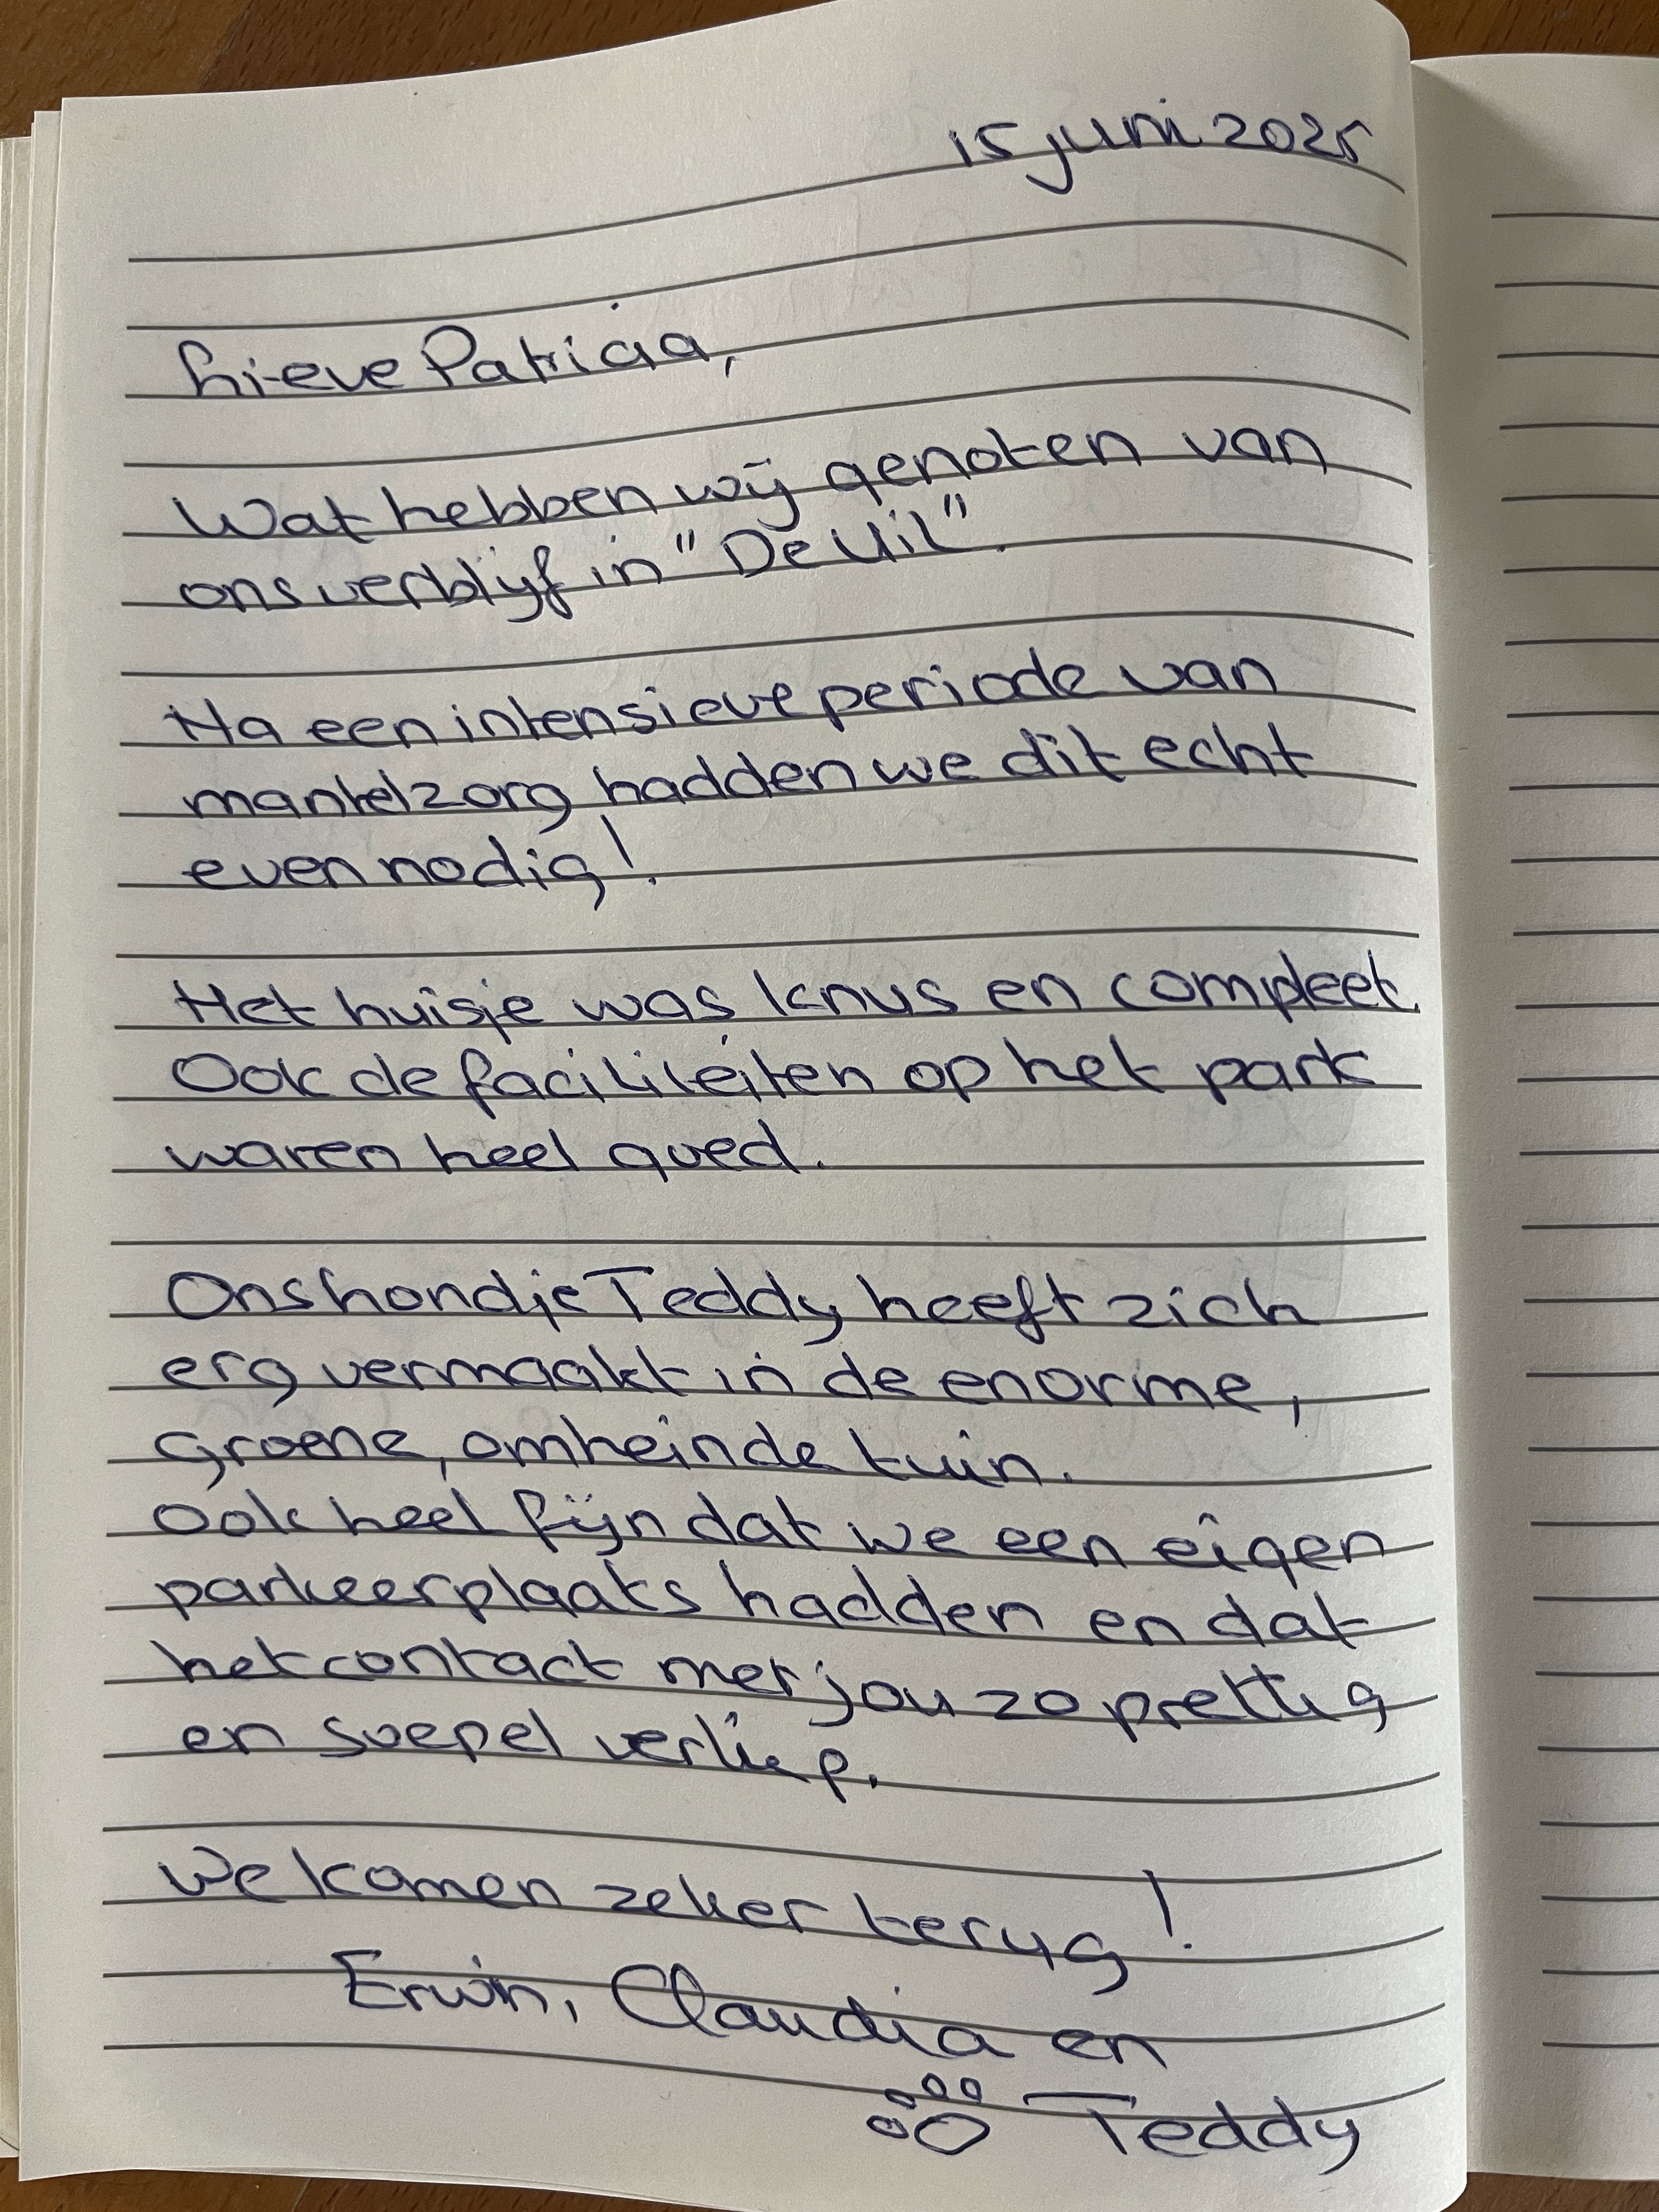 15 juni 2025
Lieve Patricia,
Wat hebben wij genoten van
ons verblijf in "De Uil".
Na een intensieve periode van
mantelzorg hadden we dit echt
even nodig!
Het huisje was knus en compleet.
Ook de faciliteiten op het park
waren heel goed.
Ons hondje Teddy heeft zich
erg vermaakt in de enorme,
groene, omheinde tuin.
Ook heel fijn dat we een eigen
parkeerplaats hadden en dat
het contact met jou zo prettig
en soepel verliep.
We komen zeker terug!
Erwin, Claudia en
Teddy